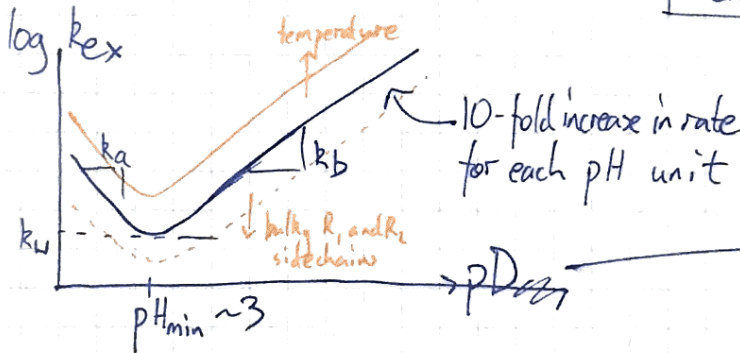 log kex
temperature
10-fold increase in rate
for each pH unit
ka
kb
kw
bulky R1 and R2
sidechains
pD
pHmin ~3